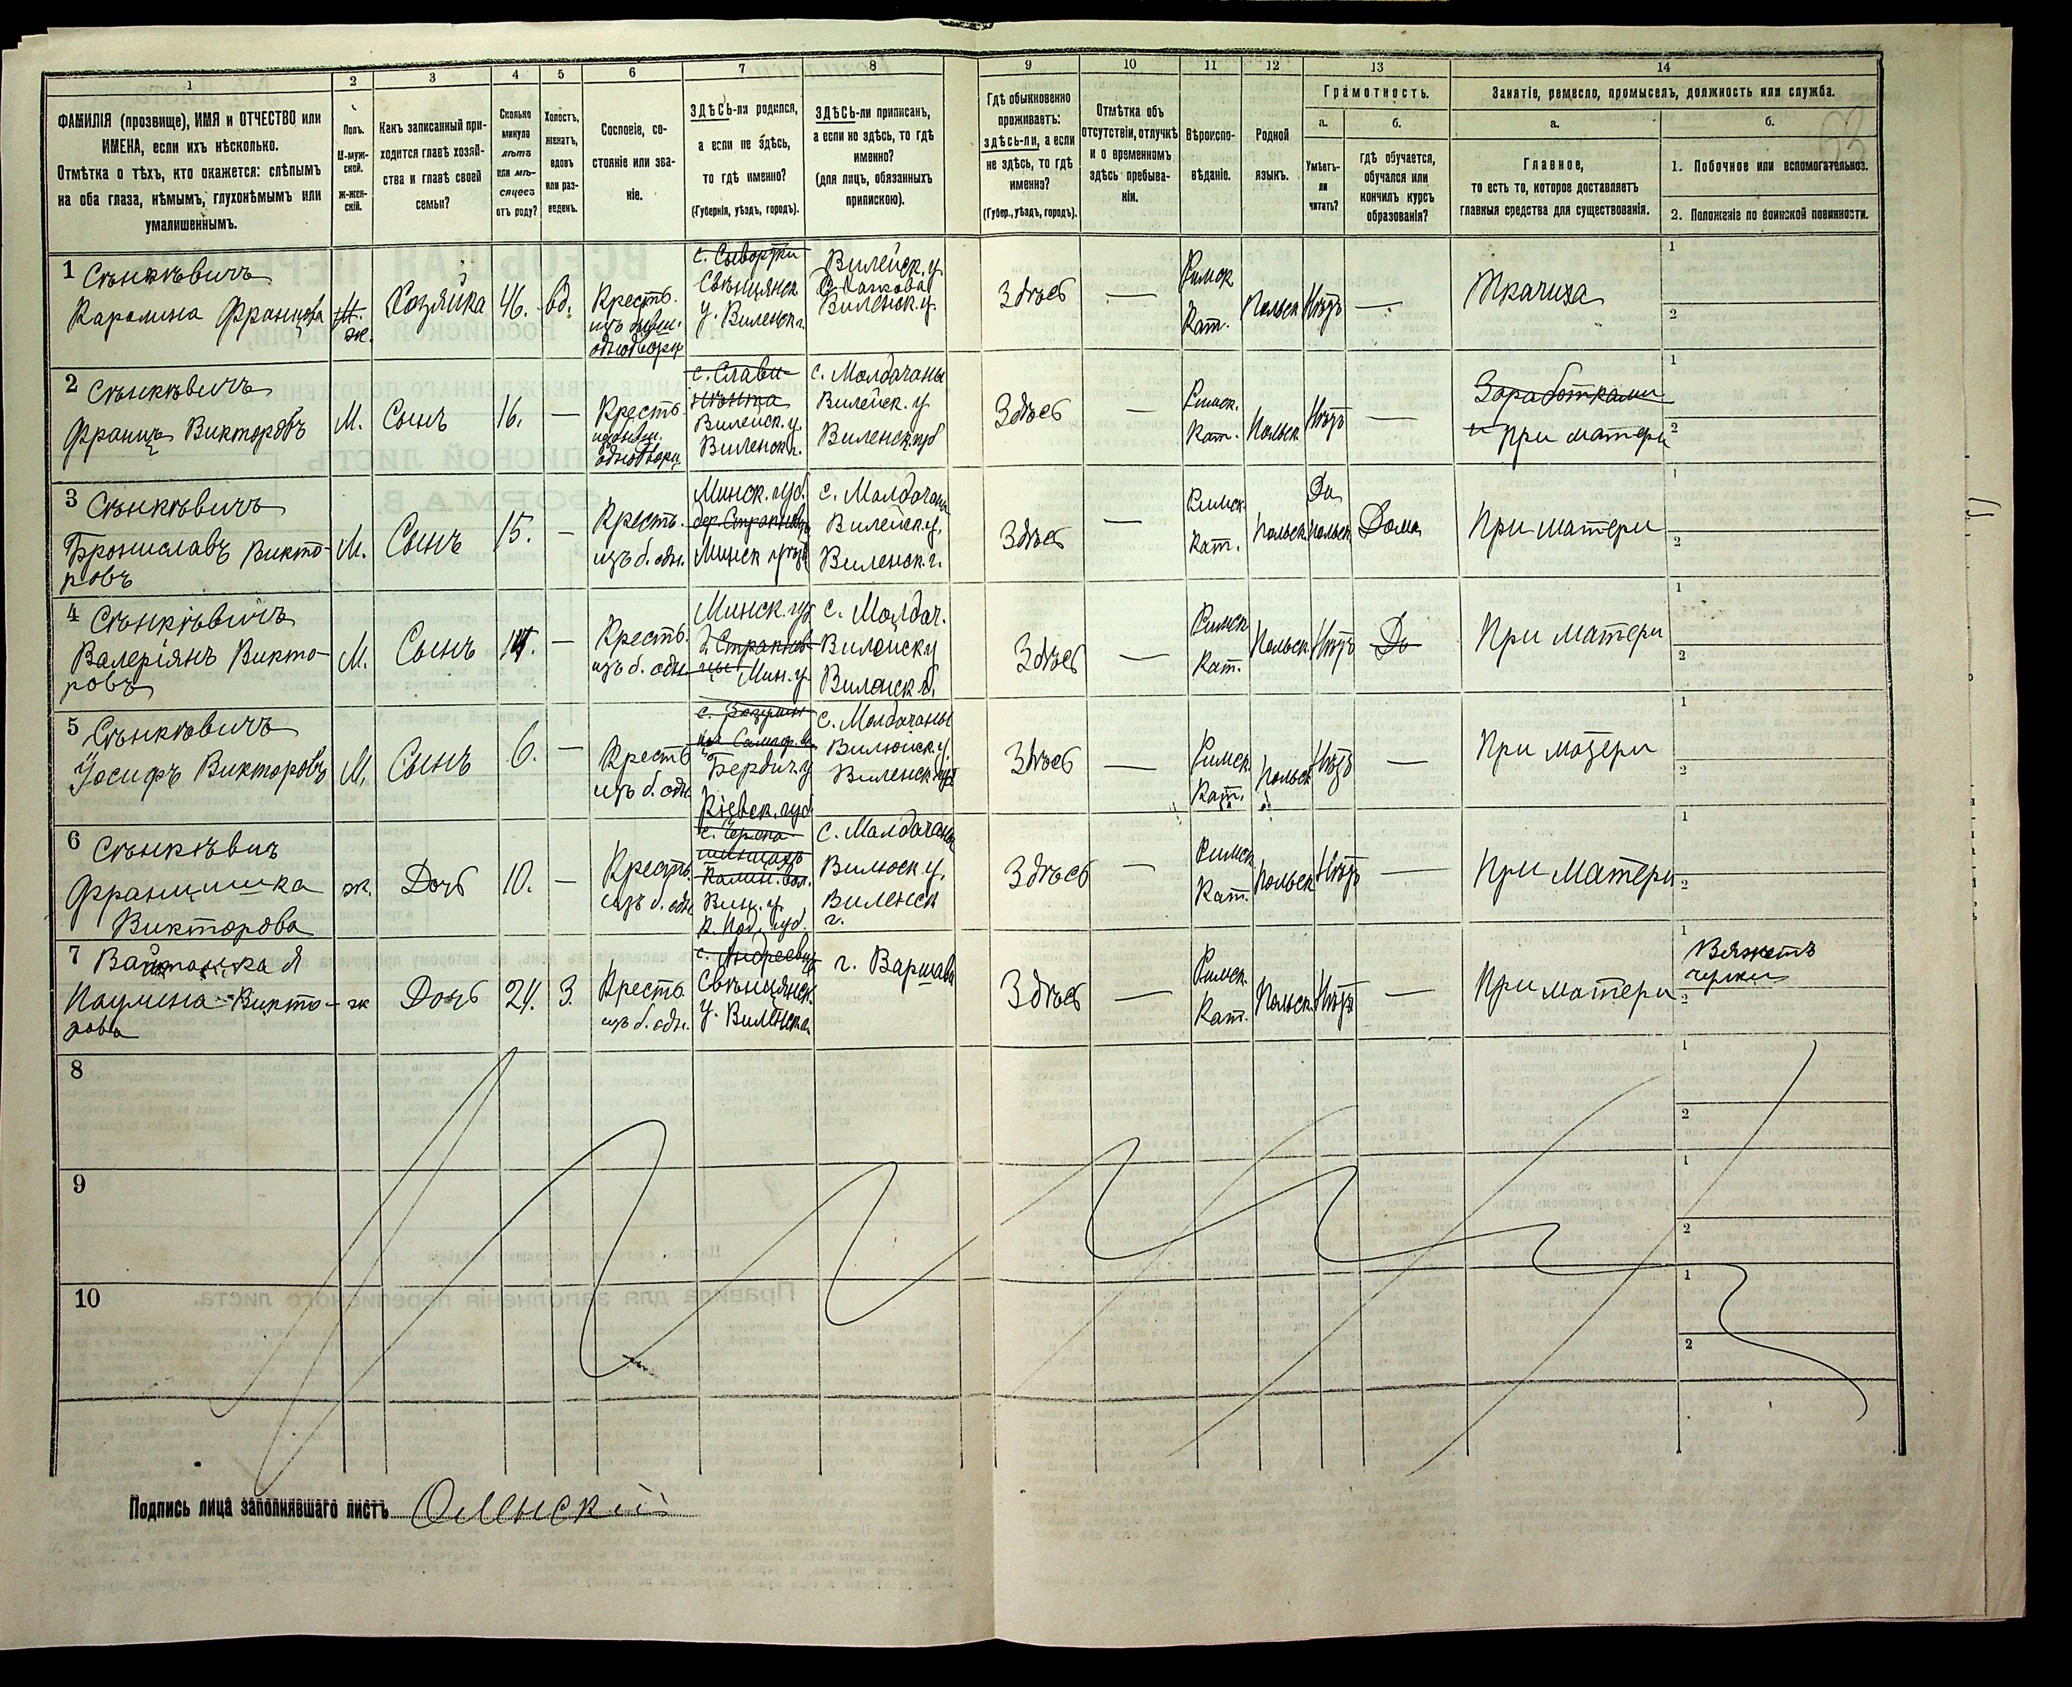 1
2
3
4
5
6
7
8
9
10
11
12
13
14
ФАМИЛІЯ (прозвище), ИМЯ и ОТЧЕСТВО или
ИМЕНА, если ихъ нѣсколько.
Отмѣтка о тѣхъ, кто окажется: слѣпымъ
на оба глаза, нѣмымъ, глухонѣмымъ или
умалишеннымъ.
Полъ.
М-муж-
ской.
Ж-жен-
скій.
Какъ записанный при-
ходится главѣ хозяй-
ства и главѣ своей
семьи?
Сколько
минуло
лѣтъ
или мѣ-
сяцевъ
отъ роду?
Холостъ,
женатъ,
вдовъ
или раз-
веденъ.
Сословіе, со-
стояніе или зва-
ніе.
ЗДѢСЬ-ли родился,
а если не здѣсь,
то гдѣ именно?
(Губернія, уѣздъ, городъ).
ЗДѢСЬ-ли приписанъ,
а если не здѣсь, то гдѣ
именно?
(для лицъ, обязанныхъ
припискою).
Гдѣ обыкновенно
проживаетъ:
здѣсь-ли, а если
не здѣсь, то гдѣ
именно?
(Губер., уѣздъ, городъ).
Отмѣтка объ
отсутствіи, отлучкѣ
и о временномъ
здѣсь пребыва-
ніи.
Вѣроиспо-
вѣданіе.
Родной
языкъ.
Грамотность.
а.
б.
Умѣетъ-
ли
читать?
гдѣ обучается,
обучался или
кончилъ курсъ
образованія?
Занятіе, ремесло, промыселъ, должность или служба.
а.
б.
Главное,
то есть то, которое доставляетъ
главныя средства для существованія.
1. Побочное или вспомогательное.
2. Положеніе по воинской повинности.
1 Сѣнкѣвичъ
Каролина Францова
ж.
Хозяйка
46.
вд.
Крестъ.
изъ бывш.
однодворц
Свѣнцянск
у. Виленск г.
Вилейск. у.
Виленск. у.
Здѣсь
—
Римск
Кат.
Польск
Нѣтъ
—
Ткачиха
1
2
2 Сѣнкѣвичъ
Францъ Викторовъ
М.
Сынъ
16.
—
Крестъ
изъ бывш.
однодворц
Вилейск. у.
Виленск г.
с. Молдачаны
Вилейск. у
Виленск губ
Здѣсь
—
Римск.
Кат.
Польск
Нѣтъ
—
Заработками
и при матери
1
2
3 Сѣнкѣвичъ
Брониславъ Викто-
ровъ
М.
Сынъ
15.
—
Крестъ.
изъ б. одн.
Минск. губ.
Минск уѣзд
с. Малдачаны
Вилейск. у.
Виленск. г.
Здѣсь
—
Римск
Кат.
Польск
Да
польск
Дома
При матери
1
2
4 Сѣнкѣвичъ
Валеріянъ Викто-
ровъ
М.
Сынъ
14.
—
Крестъ.
изъ б. одн.
Минск. губ
Мин. у.
с. Молдач.
Вилейск у
Виленск г.
Здѣсь
—
Римск
Кат.
Польск
Нѣтъ
До
При матери
1
2
5 Сѣнкѣвичъ
Іосифъ Викторовъ
М.
Сынъ
6.
—
Крестъ
изъ б. одн.
Бердич. у
Кіевск. губ
с. Молдачаны
Вилейск. у
Виленск губ
Здѣсь
—
Римск.
Кат.
Польск
Нѣтъ
—
При матери
1
2
6 Сѣнкѣвич
Францишка
Викторова
ж.
Дочь
10.
—
Крестъ.
изъ б. одн
Вин. у.
К. Под. губ.
с. Малдачаны
Вилейск. у.
Виленск
г.
Здѣсь
—
Римск
Кат.
Польск
Нѣтъ
—
При матери
1
2
7
Паулина Викто-
рова
ж
Дочь
24.
З.
Крестъ
изъ б. одн.
Свѣнцянск.
у. Виленск г.
г. Варшава
Здѣсь
—
Римск.
Кат.
Польск.
Нѣтъ
—
При матери
1
Вяжетъ
чулки
2
8
1
2
9
1
2
10
1
2
Подпись лица заполнявшаго листъ